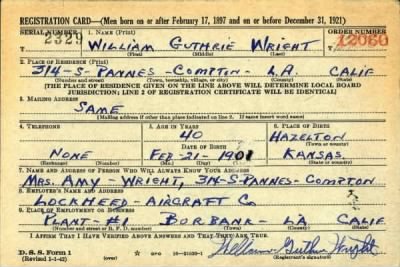 REGISTRATION CARD—(Men born on or after February 17, 1897 and on or before December 31, 1921)
SERIAL NUMBER 1. NAME (Print) ORDER NUMBER
2329 WILLIAM GUTHRIE WRIGHT 12060
(First) (Middle) (Last)
2. PLACE OF RESIDENCE (Print)
314-S-PANNES-COMPTON- L.A. CALIF
(Number and street) (Town, township, village, or city) (County) (State)
[THE PLACE OF RESIDENCE GIVEN ON THE LINE ABOVE WILL DETERMINE LOCAL BOARD
JURISDICTION; LINE 2 OF REGISTRATION CERTIFICATE WILL BE IDENTICAL]
3. MAILING ADDRESS
SAME
[Mailing address if other than place indicated on line 2. If same insert word same]
4. TELEPHONE 5. AGE IN YEARS 6. PLACE OF BIRTH
40 HAZELTON
DATE OF BIRTH (Town or county)
NONE FEB-21-1901 KANSAS
(Exchange) (Number) (Mo.) (Day) (Yr.) (State or country)
7. NAME AND ADDRESS OF PERSON WHO WILL ALWAYS KNOW YOUR ADDRESS
MRS. AMY-WRIGHT, 314-S-PANNES-COMPTON
8. EMPLOYER'S NAME AND ADDRESS
LOCKHEED-AIRCRAFT CO
9. PLACE OF EMPLOYMENT OR BUSINESS
PLANT-#1 BORBANK- LA CALIF
(Number and street or R. F. D. number) (Town) (County) (State)
I AFFIRM THAT I HAVE VERIFIED ABOVE ANSWERS AND THAT THEY ARE TRUE.
D. S. S. Form 1
(Revised 1-1-42) GPO 16-21630-1 William Guthrie Wright
(Registrant's signature)